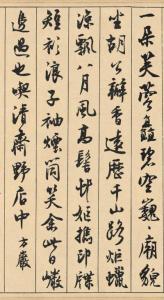 一朵芙蓉矗碧空巍巍廟貌
坐胡公瓣香遠歷千山路炬蠟
涼飄八月風高髻邨姬攜印牒
短衫浪子袖煙筒笑余此日巖
邊過也喫清齋野店中 方巖